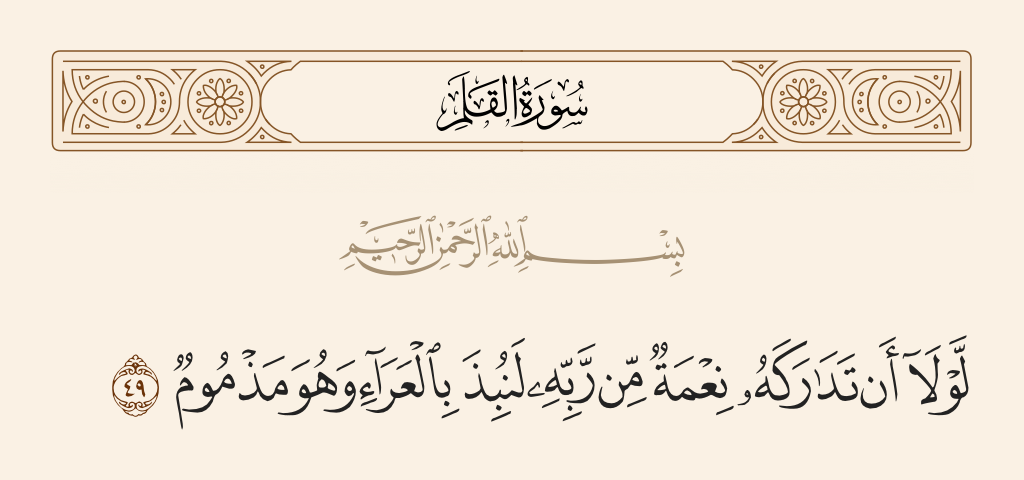 سُورَةُ القَلَمِ
بِسْمِ ٱللَّهِ ٱلرَّحْمَٰنِ ٱلرَّحِيمِ
لَّوْلَآ أَن تَدَٰرَكَهُۥ نِعْمَةٌ مِّن رَّبِّهِۦ لَنُبِذَ بِٱلْعَرَآءِ وَهُوَ مَذْمُومٌ ٤٩